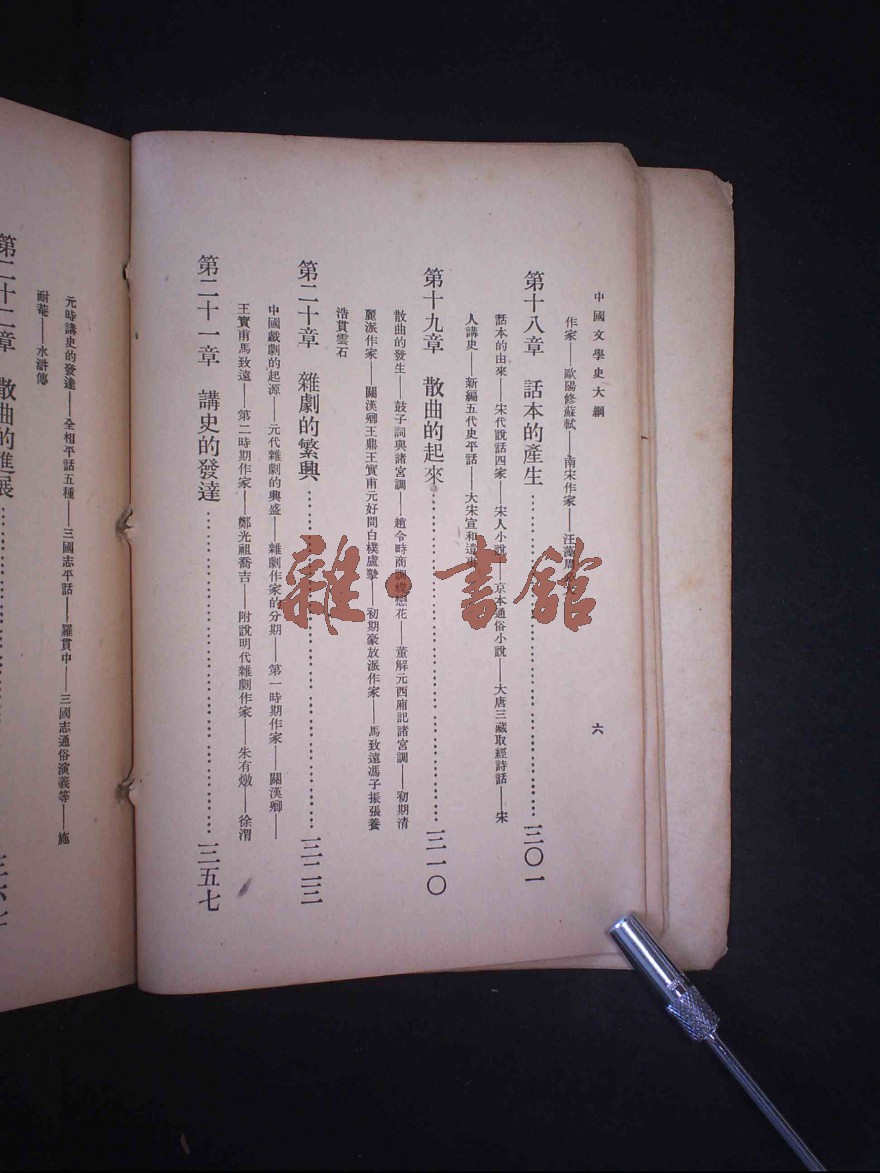 中國文學史大綱
六
作家——歐陽修蘇軾——南宋作家——汪藻周
第十八章 話本的產生……三〇一
話本的由來——宋代說話四家——宋人小說——京本通俗小說——大唐三藏取經詩話——宋
人講史——新編五代史平話——大宋宣和遺事
第十九章 散曲的起來……三一〇
散曲的發生——鼓子詞與諸宮調——趙令畤商調蝶戀花——董解元西廂記諸宮調——初期清
麗派作家——關漢卿王鼎王實甫元好問白樸盧摯——初期豪放派作家——馬致遠馮子振張養
浩貫雲石
第二十章 雜劇的繁興……三二三
中國戲劇的起源——元代雜劇的興盛——雜劇作家的分期——第一時期作家——關漢卿——
王實甫馬致遠——第二時期作家——鄭光祖喬吉——附說明代雜劇作家——朱有燉——徐渭
第二十一章 講史的發達……三五七
元時講史的發達——全相平話五種——三國志平話——羅貫中——三國志通俗演義等——施
耐菴——水滸傳
第二十二章 散曲的進展……
雜·書館